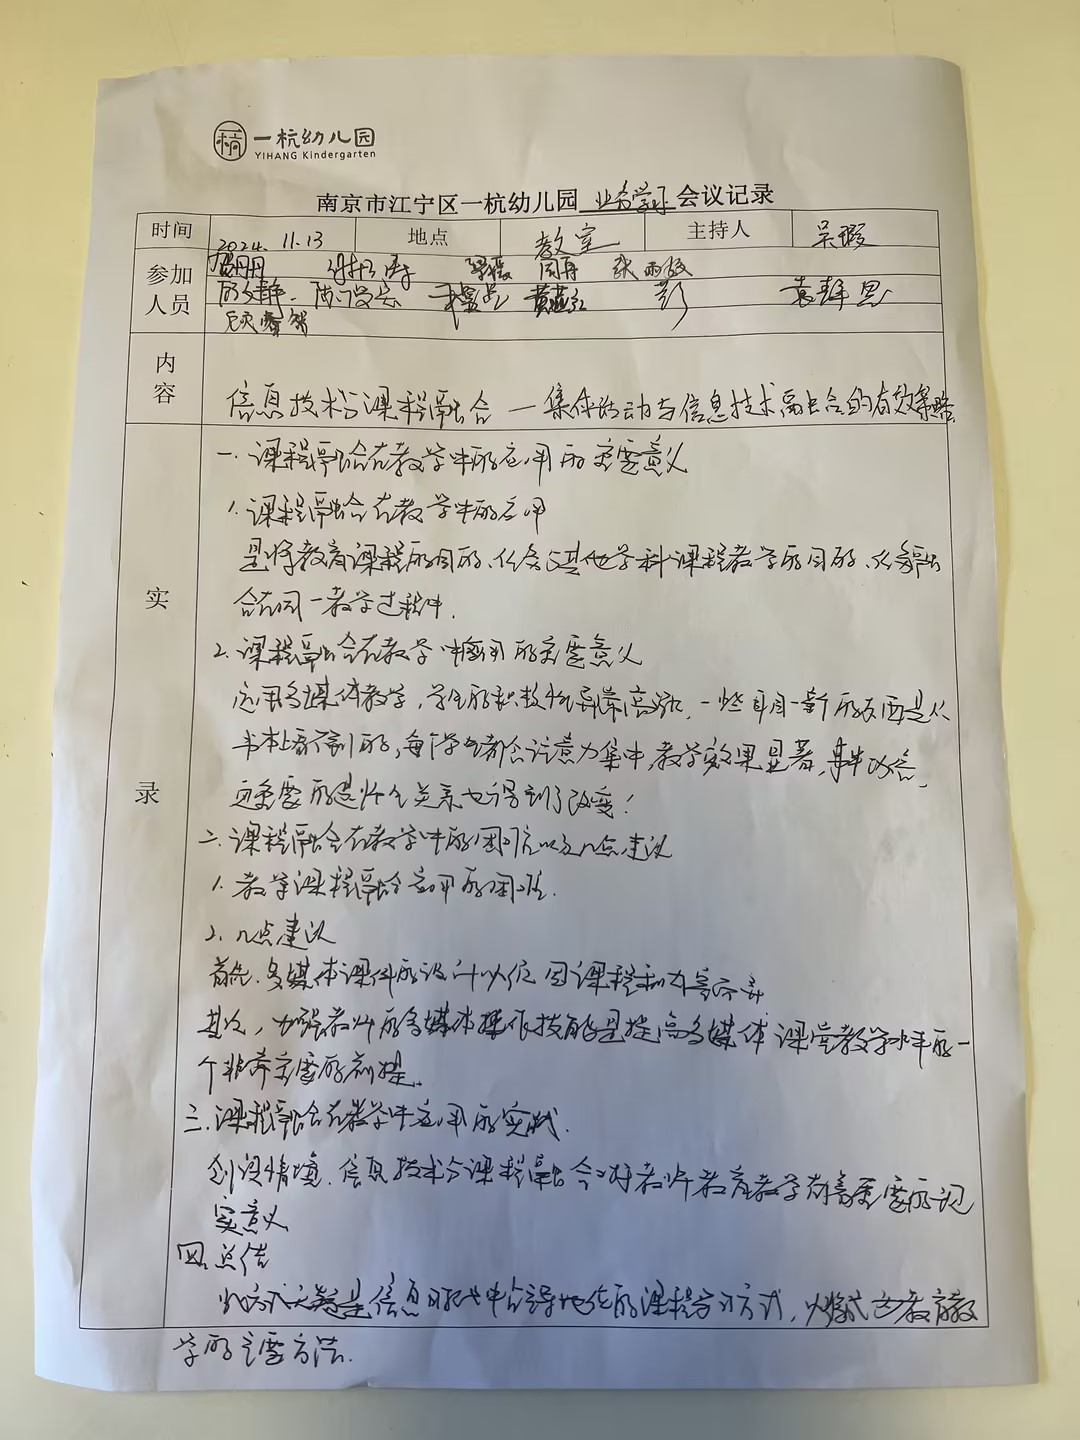 一杭幼儿园
YIHANG Kindergarten
南京市江宁区一杭幼儿园 业务学习 会议记录
时间 2024. 11.13 地点 教室 主持人 吴瑕
参加人员 周丹丹 周丹
黄燕红 彭
内容 信息技术与课程融合 — 集体活动与信息技术融合的有效策略
实录
一. 课程融合在教学中的应用的重要意义
1. 课程融合在教学中的应用
是将教育课程的目的、任务与其他学科课程教学的目的、任务融
合在同一教学过程中.
2. 课程融合在教学中应用的重要意义
运用多媒体教学, 学生的积极性异常高涨, 一些耳目一新的东西是从
书本上看不到的, 每个学生都会注意力集中, 教学效果显著,
更重要的是师生关系也得到了改变!
二. 课程融合在教学中的困难以及几点建议
1. 教学课程融合应用的困难.
2. 几点建议
首先, 多媒体课件的设计
其次, 加强教师的多媒体操作技能是提高多媒体课堂教学水平的一
个非常重要的前提.
三. 课程融合在教学中应用的实践.
创设情境. 信息技术与课程融合对教师教育教学有着重要的现
实意义
四. 总结
是信息时代中占主导地位的课程学习方式, 教育教
学的主要方法.